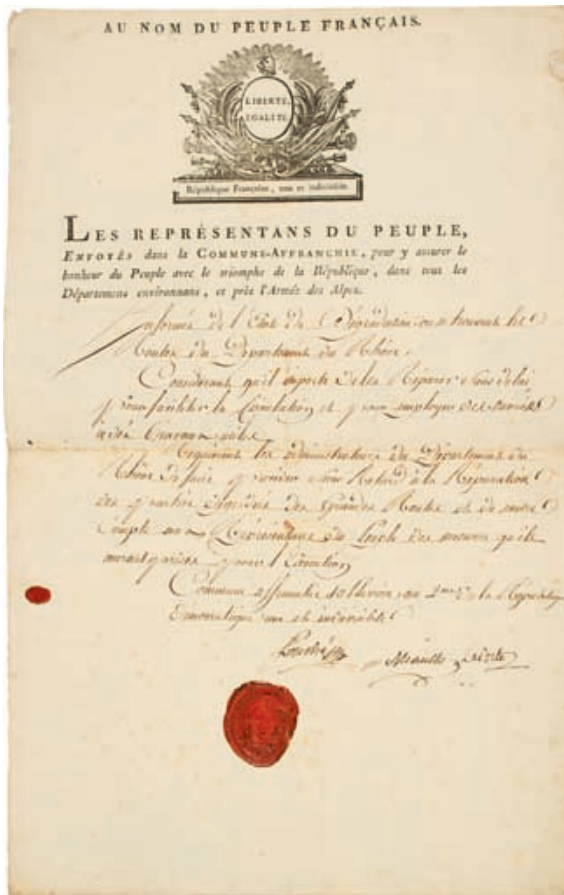 AU NOM DU PEUPLE FRANÇAIS.
LIBERTE,
EGALITE.
République Française, une et indivisible.
LES REPRÉSENTANS DU PEUPLE,
ENVOYÉS dans la COMMUNE-AFFRANCHIE, pour y assurer le
bonheur du Peuple avec le triomphe de la République, dans tous les
Départemens environnans, et près l'Armée des Alpes.
Informés de l'Etat de Dégradation où se trouvent les
Routes du Département du Rhône.
Considerant qu'il importe de les Réparer sans delai
pour faciliter la Circulation et pour employer des
à des travaux utiles
Requierent les administrateurs du Département du
Rhône de faire proceder sans Retard à la Réparation
des parties des Grandes Routes et de rendre
Compte aux Représentans du Peuple des mesures qu'ils
auront prises pour l'Execution
Commune affranchie pluviose an 2me de la République
une et indivisible
Fouché